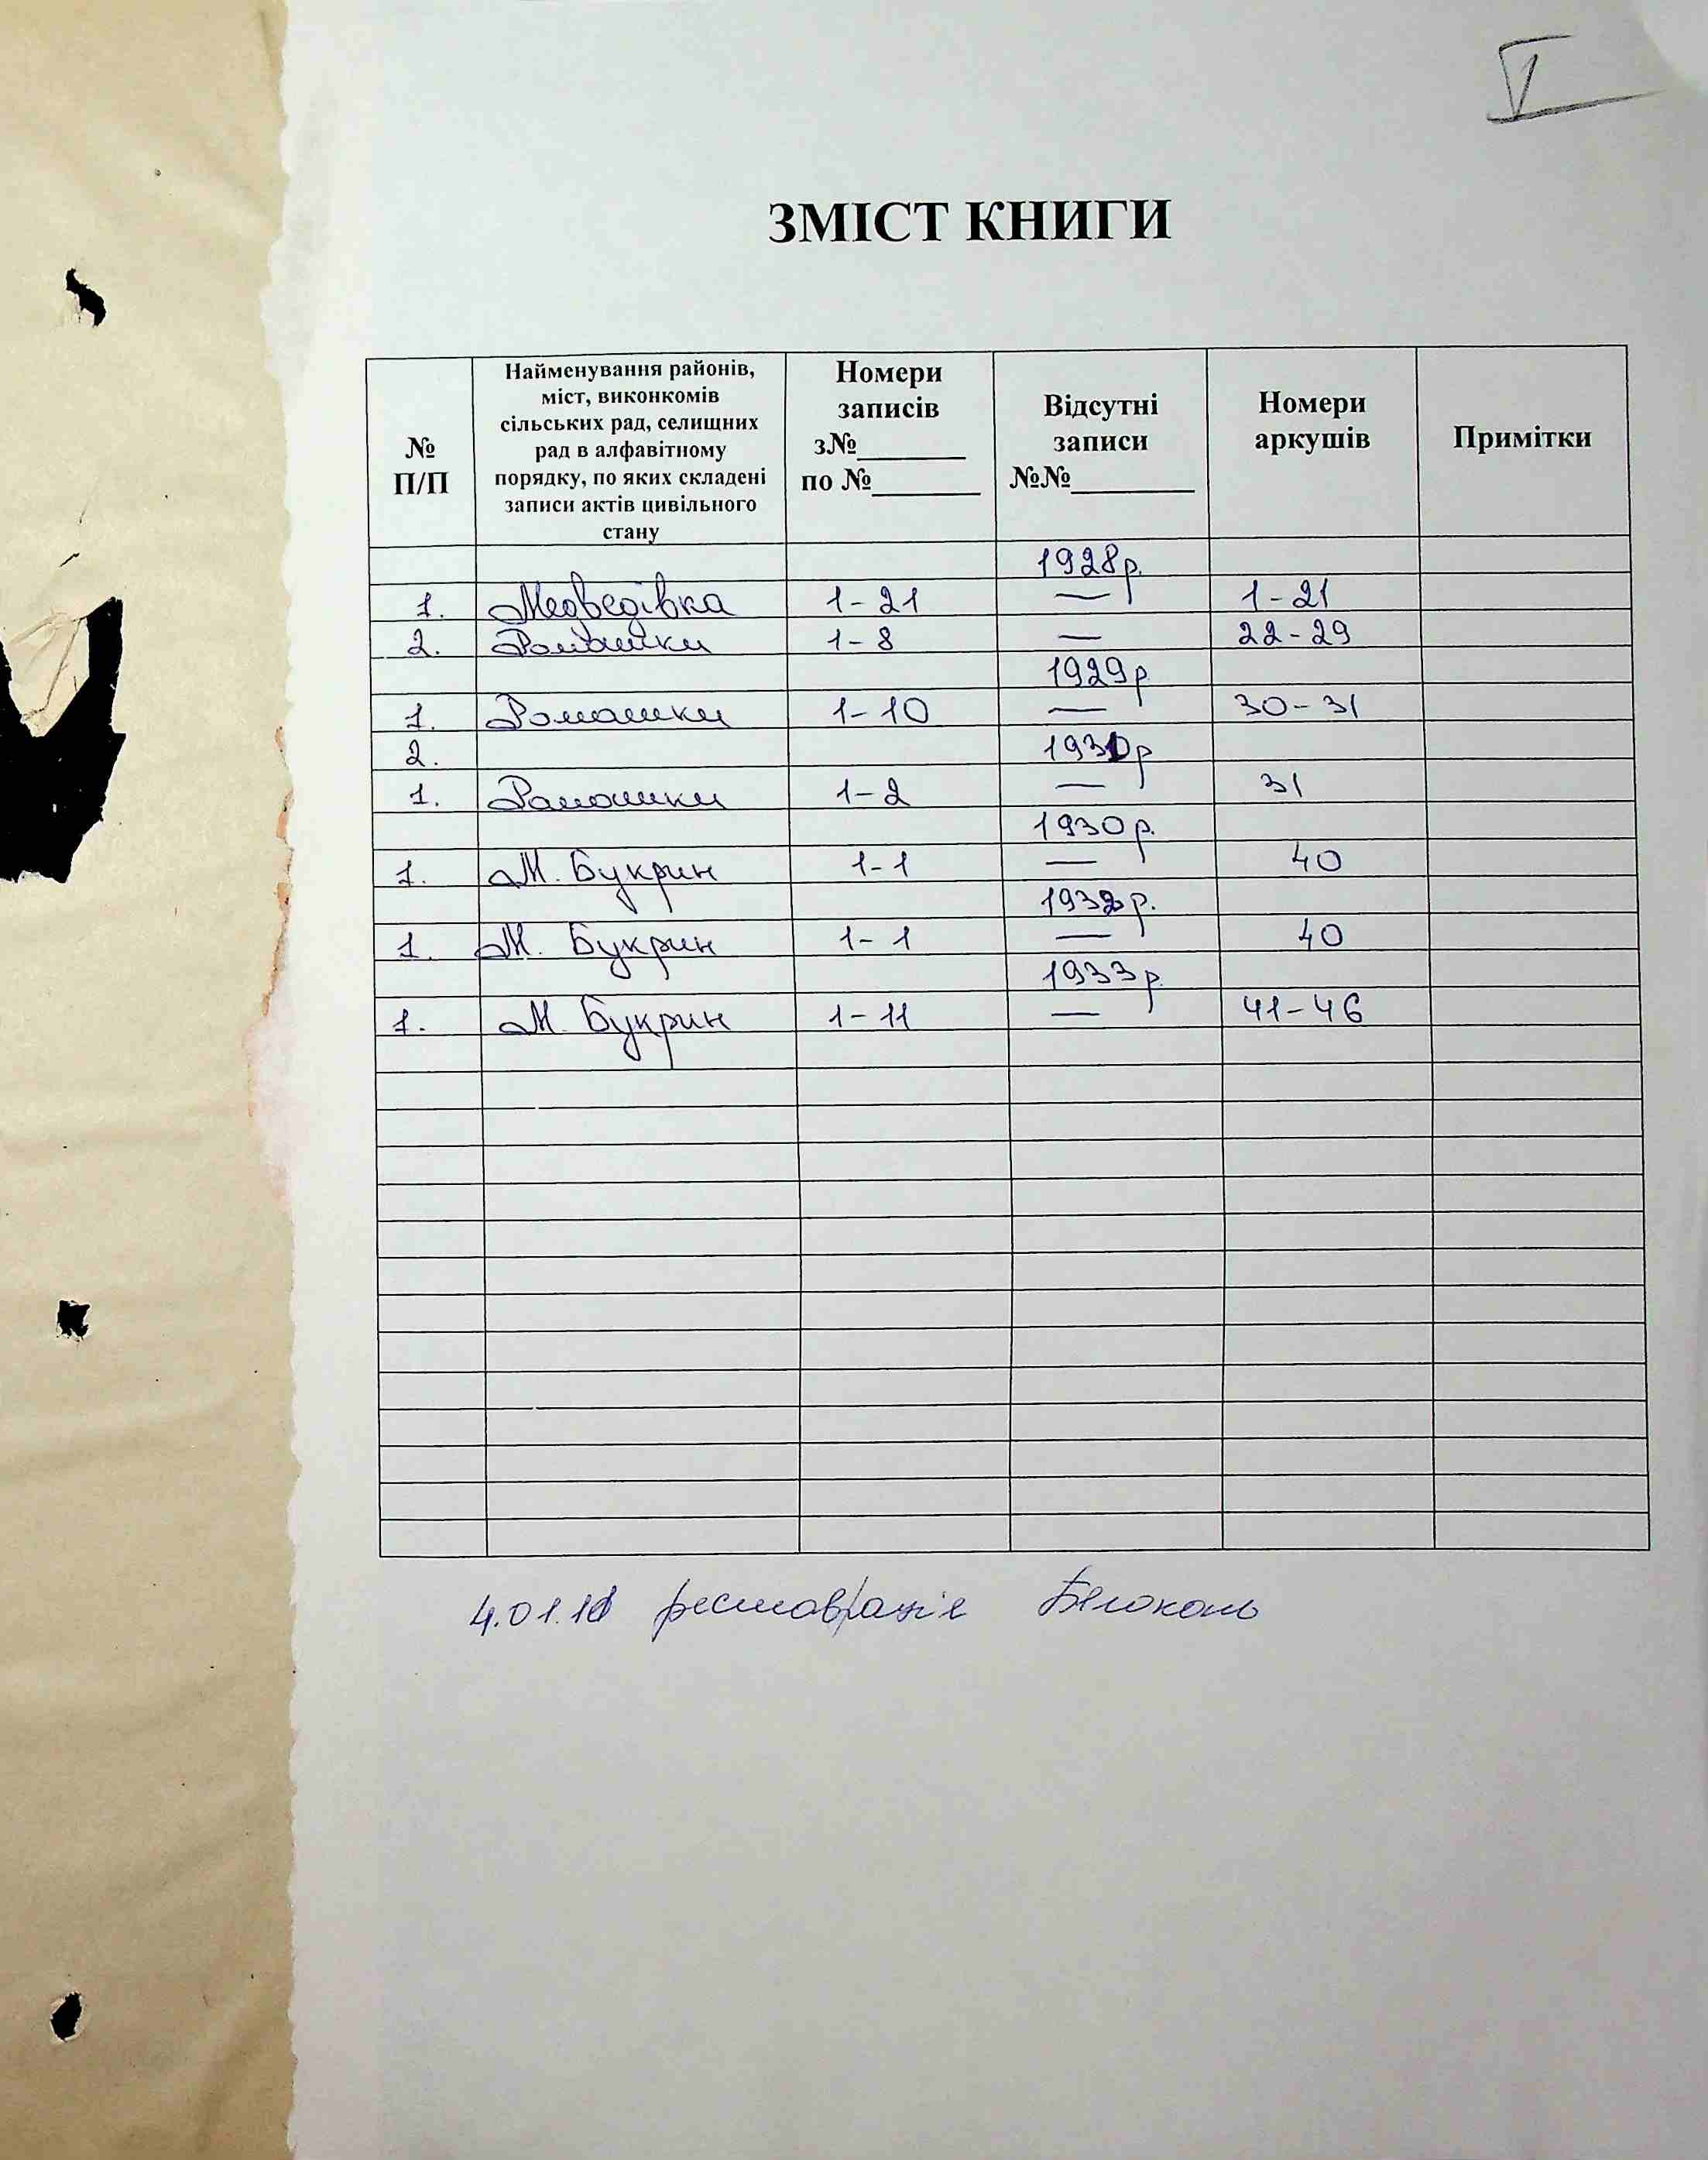 V
ЗМІСТ КНИГИ
№ П/П
Найменування районів, міст, виконкомів сільських рад, селищних рад в алфавітному порядку, по яких складені записи актів цивільного стану
Номери записів з№________ по №________
Відсутні записи №№_________
Номери аркушів
Примітки
1928р.
1. Медведівка 1-21 — 1-21
2. Ромашки 1-8 — 22-29
1929р
1. Ромашки 1-10 — 30-31
2.
1. Ромашки 1-2 — 31
1930р.
1. М. Букрин 1-1 — 40
1932р.
1. М. Букрин 1-1 — 40
1933р.
1. М. Букрин 1-11 — 41-46
реставрація Білоконь